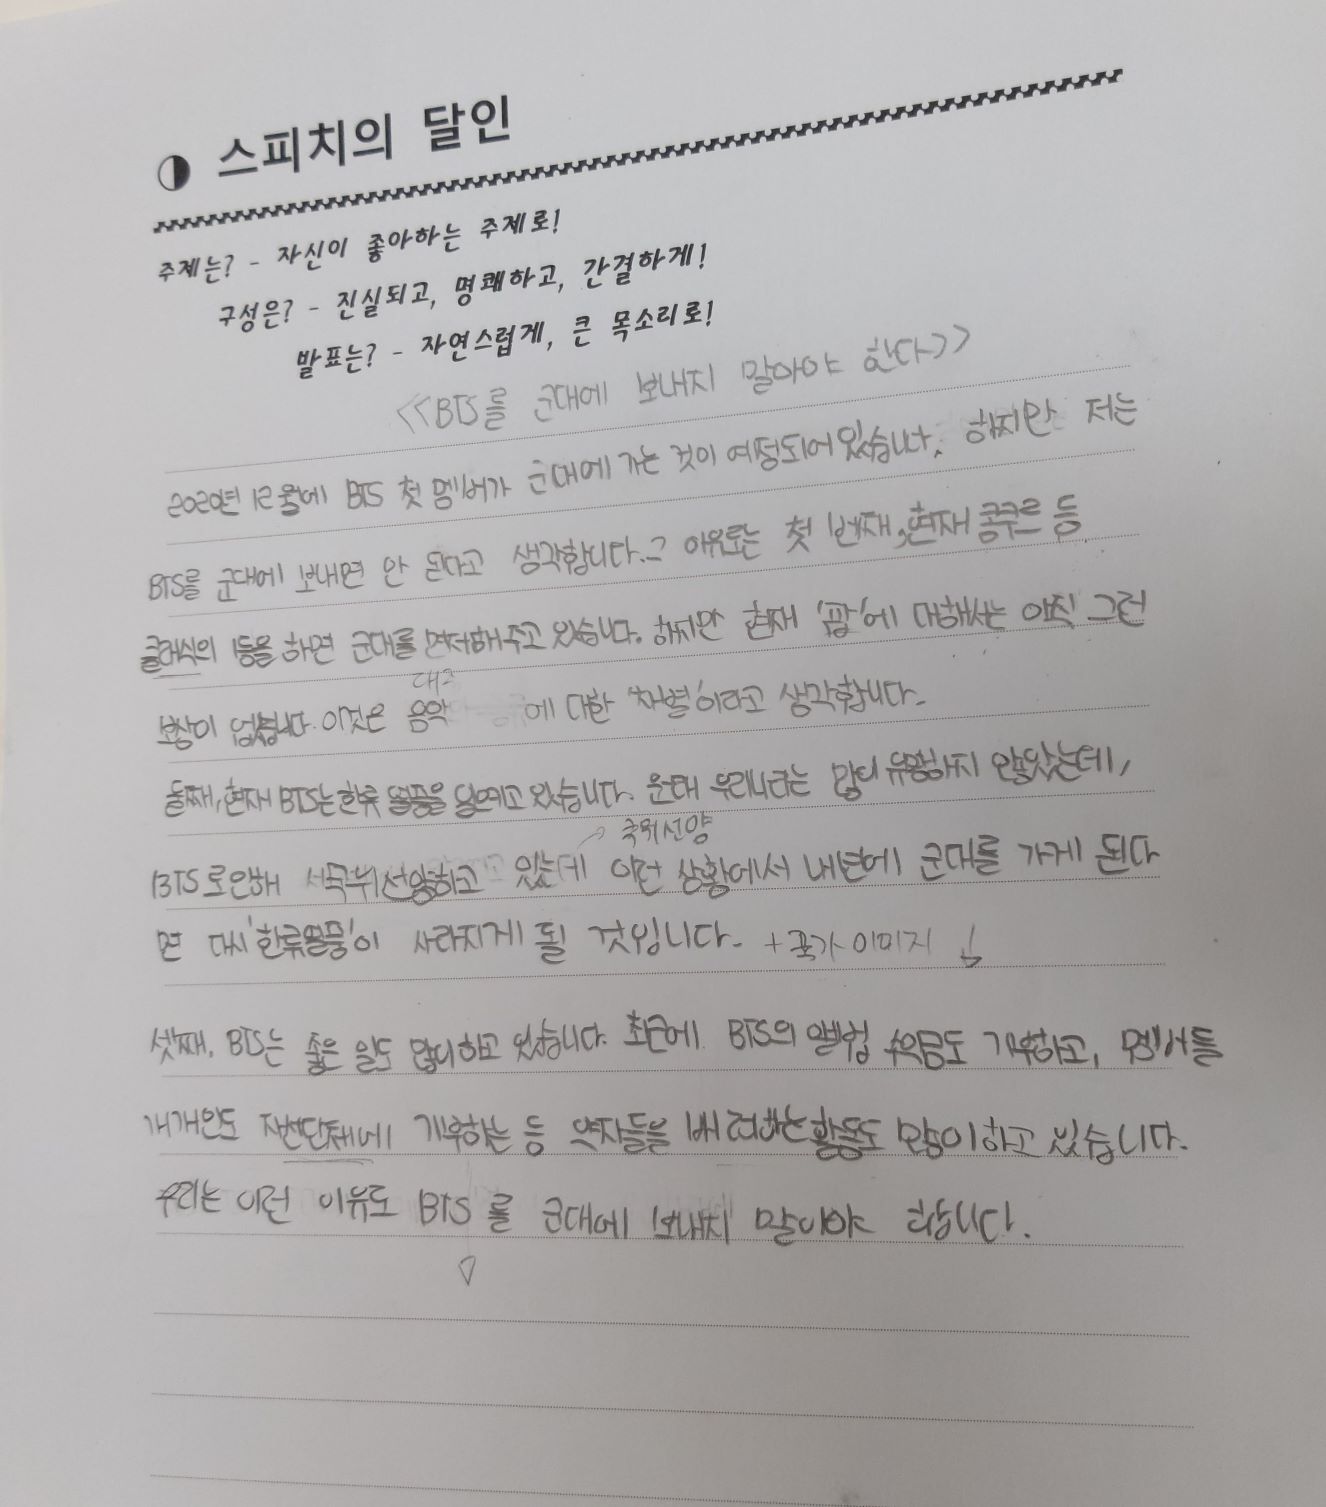 스피치의 달인
주제는? - 자신이 좋아하는 주제로!
구성은? - 진실되고, 명쾌하고, 간결하게!
발표는? - 자연스럽게, 큰 목소리로!
<<BTS를 군대에 보내지 말아야 한다>>
2020년 12월에 BTS 첫 멤버가 군대에 가는 것이 예정되어 있습니다. 하지만 저는
BTS를 군대에 보내면 안 된다고 생각합니다. 그 이유로는 첫 번째, 현재 콩쿠르 등
클래식의 1등을 하면 군대를 면저해주고 있습니다. 하지만 현재 '팝'에 대해서는 아직 그런
대중
보상이 없습니다. 이것은 음악에 대한 '차별'이라고 생각합니다.
둘째, 현재 BTS는 한류 열풍을 일으키고 있습니다. 원래 우리나라는 많이 유명하지 않았는데,
국위선양
BTS로 인해 국위선양하고 있는데 이런 상황에서 내년에 군대를 가게 된다
면 다시 '한류열풍'이 사라지게 될 것입니다. + 국가 이미지 ↓
셋째, BTS는 좋은 일도 많이하고 있습니다. 최근에 BTS의 앨범 수익금도 기부하고, 멤버들
개개인도 자선단체에 기부하는 등 약자들을 배려하는 활동도 많이하고 있습니다.
우리는 이런 이유로 BTS를 군대에 보내지 말아야 합니다.